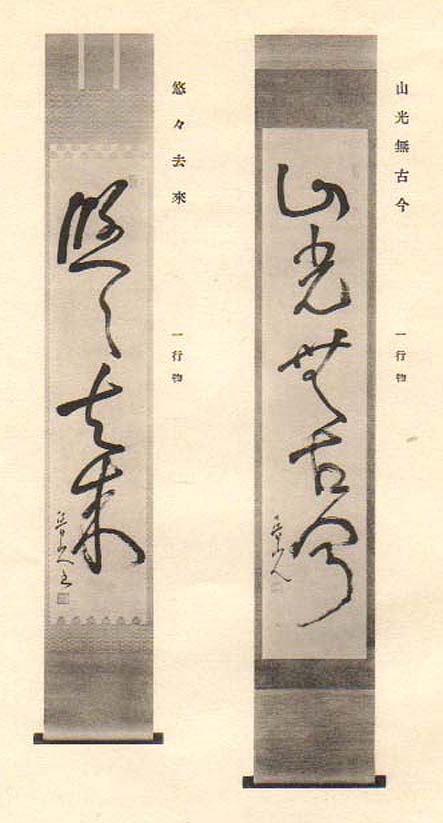 山光無古今
一行物
山光無古今
悠々去來
一行物
悠々去来